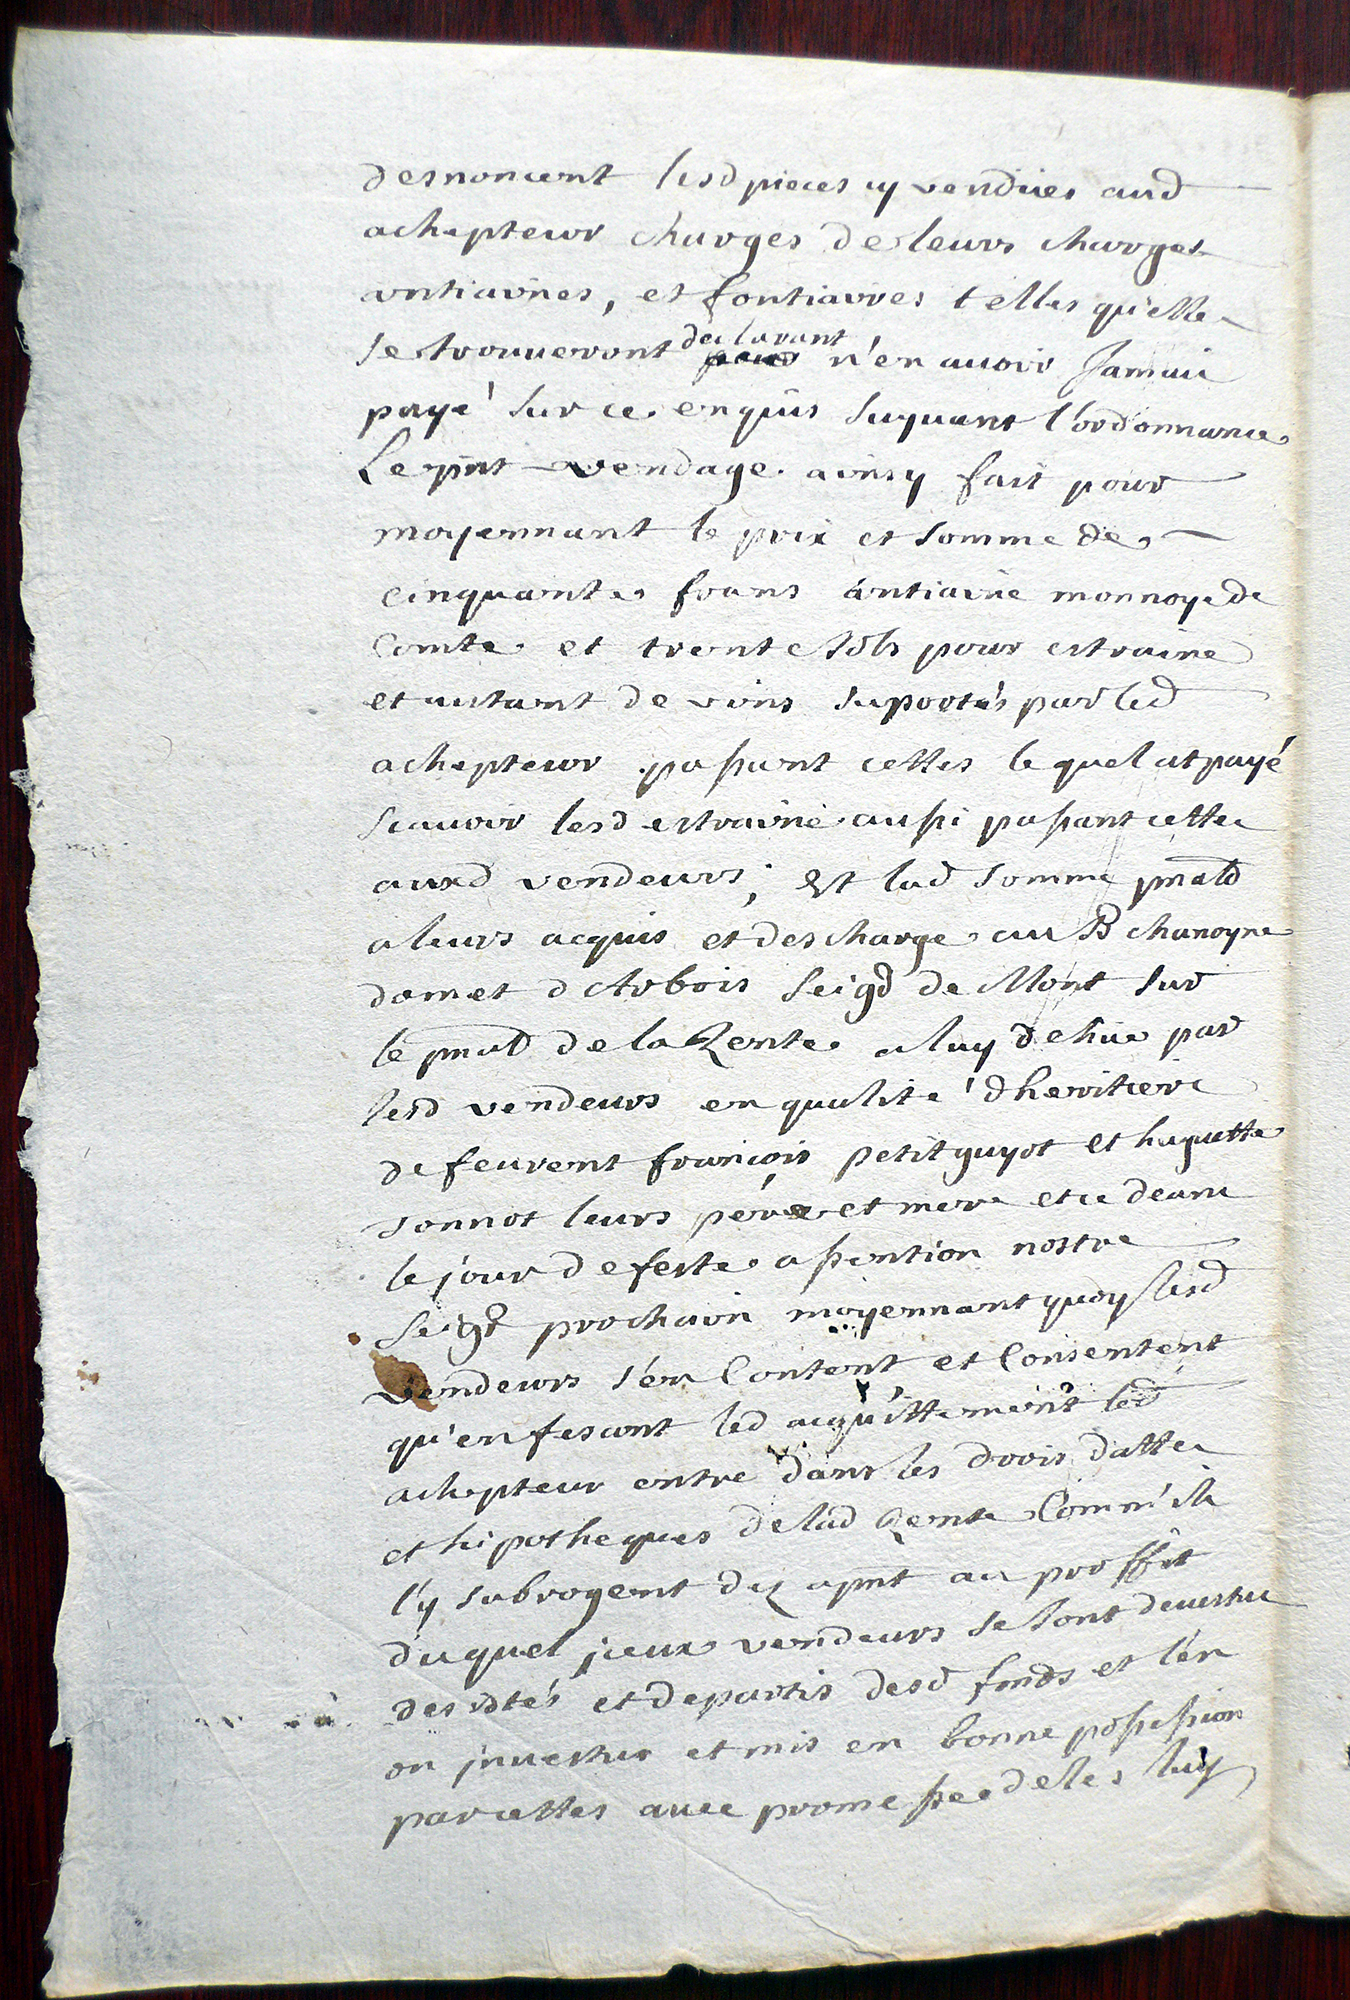 desnoncent lesd pieces cy vendües aud
achepteur charges de leurs charges
antiaines, et fontiaires telles qu'elle
se trouueront declarant n'en auoir Jamai
payé sur ce enquis suyuant l'ordonnance
Le pnt vendage ainsy fait pour
moyennant le prix et somme de
cinquante frans antiaine monnoye de
Comte et trente sols pour estraine
et autant de vins suportés par led
achepteur passant cettes lequel at payé
scauoir lesd estraine aussi passant cette
auxd vendeurs, Et lad somme
a leurs acquis et descharge au chanoyne
damet d Arbois Seigr de Mont sur
le de la Rente a luy dehue par
lesd vendeurs en qualité d'heritiere
de feurent francois petitguyot et huguette
sonnot leurs pere et mere et ce deans
le jour de feste assention nostre
Seigr prochain moyennant quoy lesd
vendeurs s'en Content et Consentent
qu'en fesant led acquittement led
achepteur entre dans les drois d'atte
et hipotheques de lad Rente Comm'ils
l'y subrogent dez apnt au proffit
duquel jceux vendeurs se sont deuestue
des et departis desd fonds et l'en
on jnuestus et mis en bonne possession
par cettes auec promesse de les luy